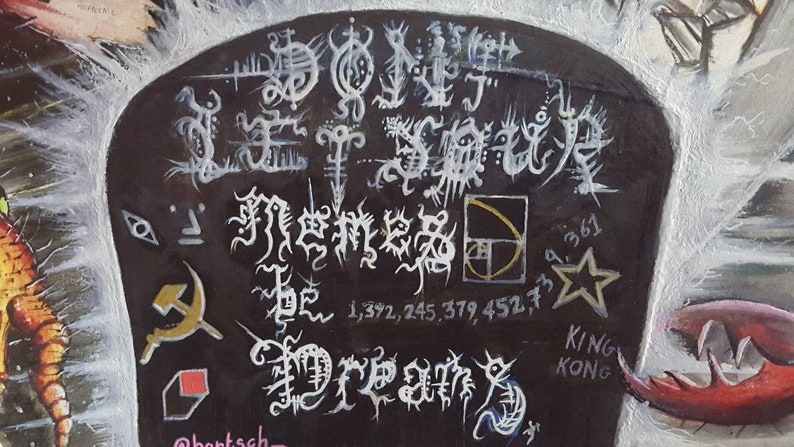 DON'T
LET YOUR
Nemes
be
1,392,245,379,452,7
39,361
KING
KONG
Dreams
@hartsch_